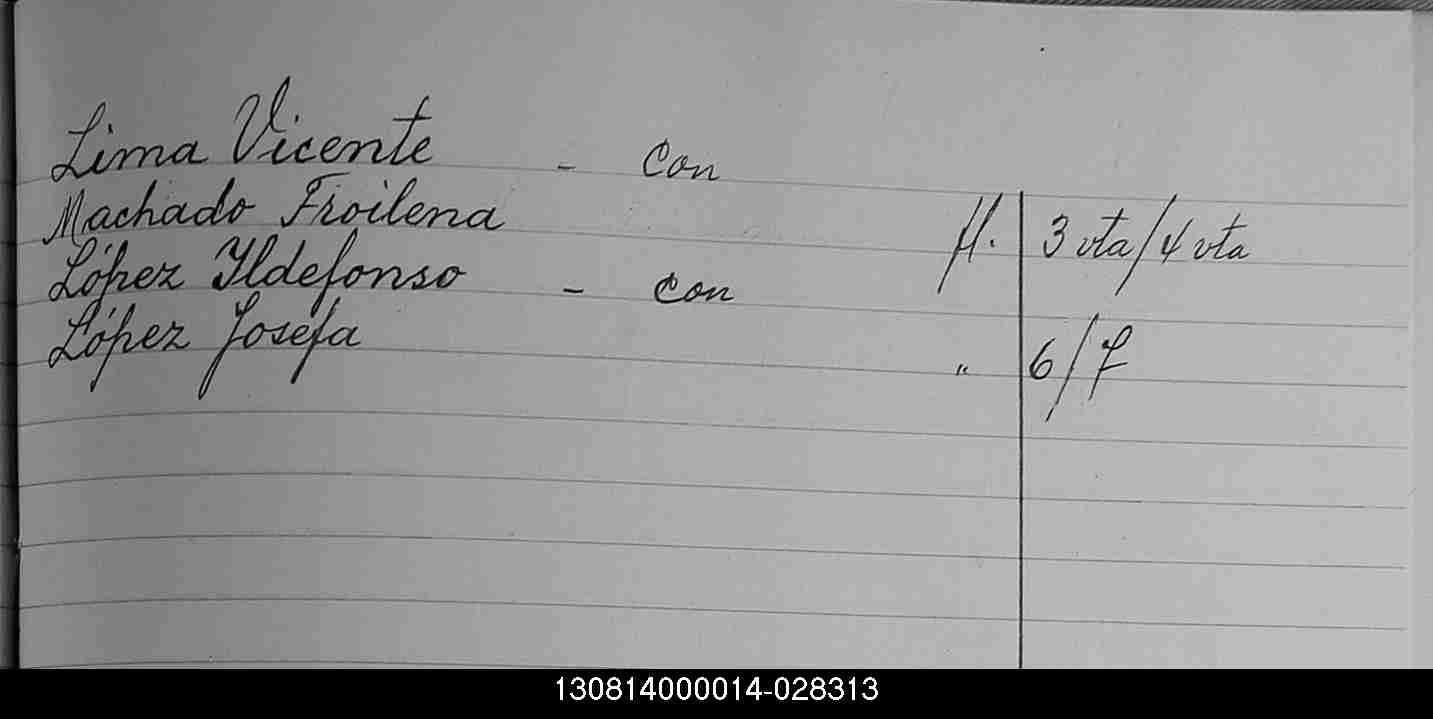 Lima Vicente - con
Machado Froilena fl. 3 vta/4 vta
López Yldefonso - con
López Josefa " 6/7
130814000014-028313